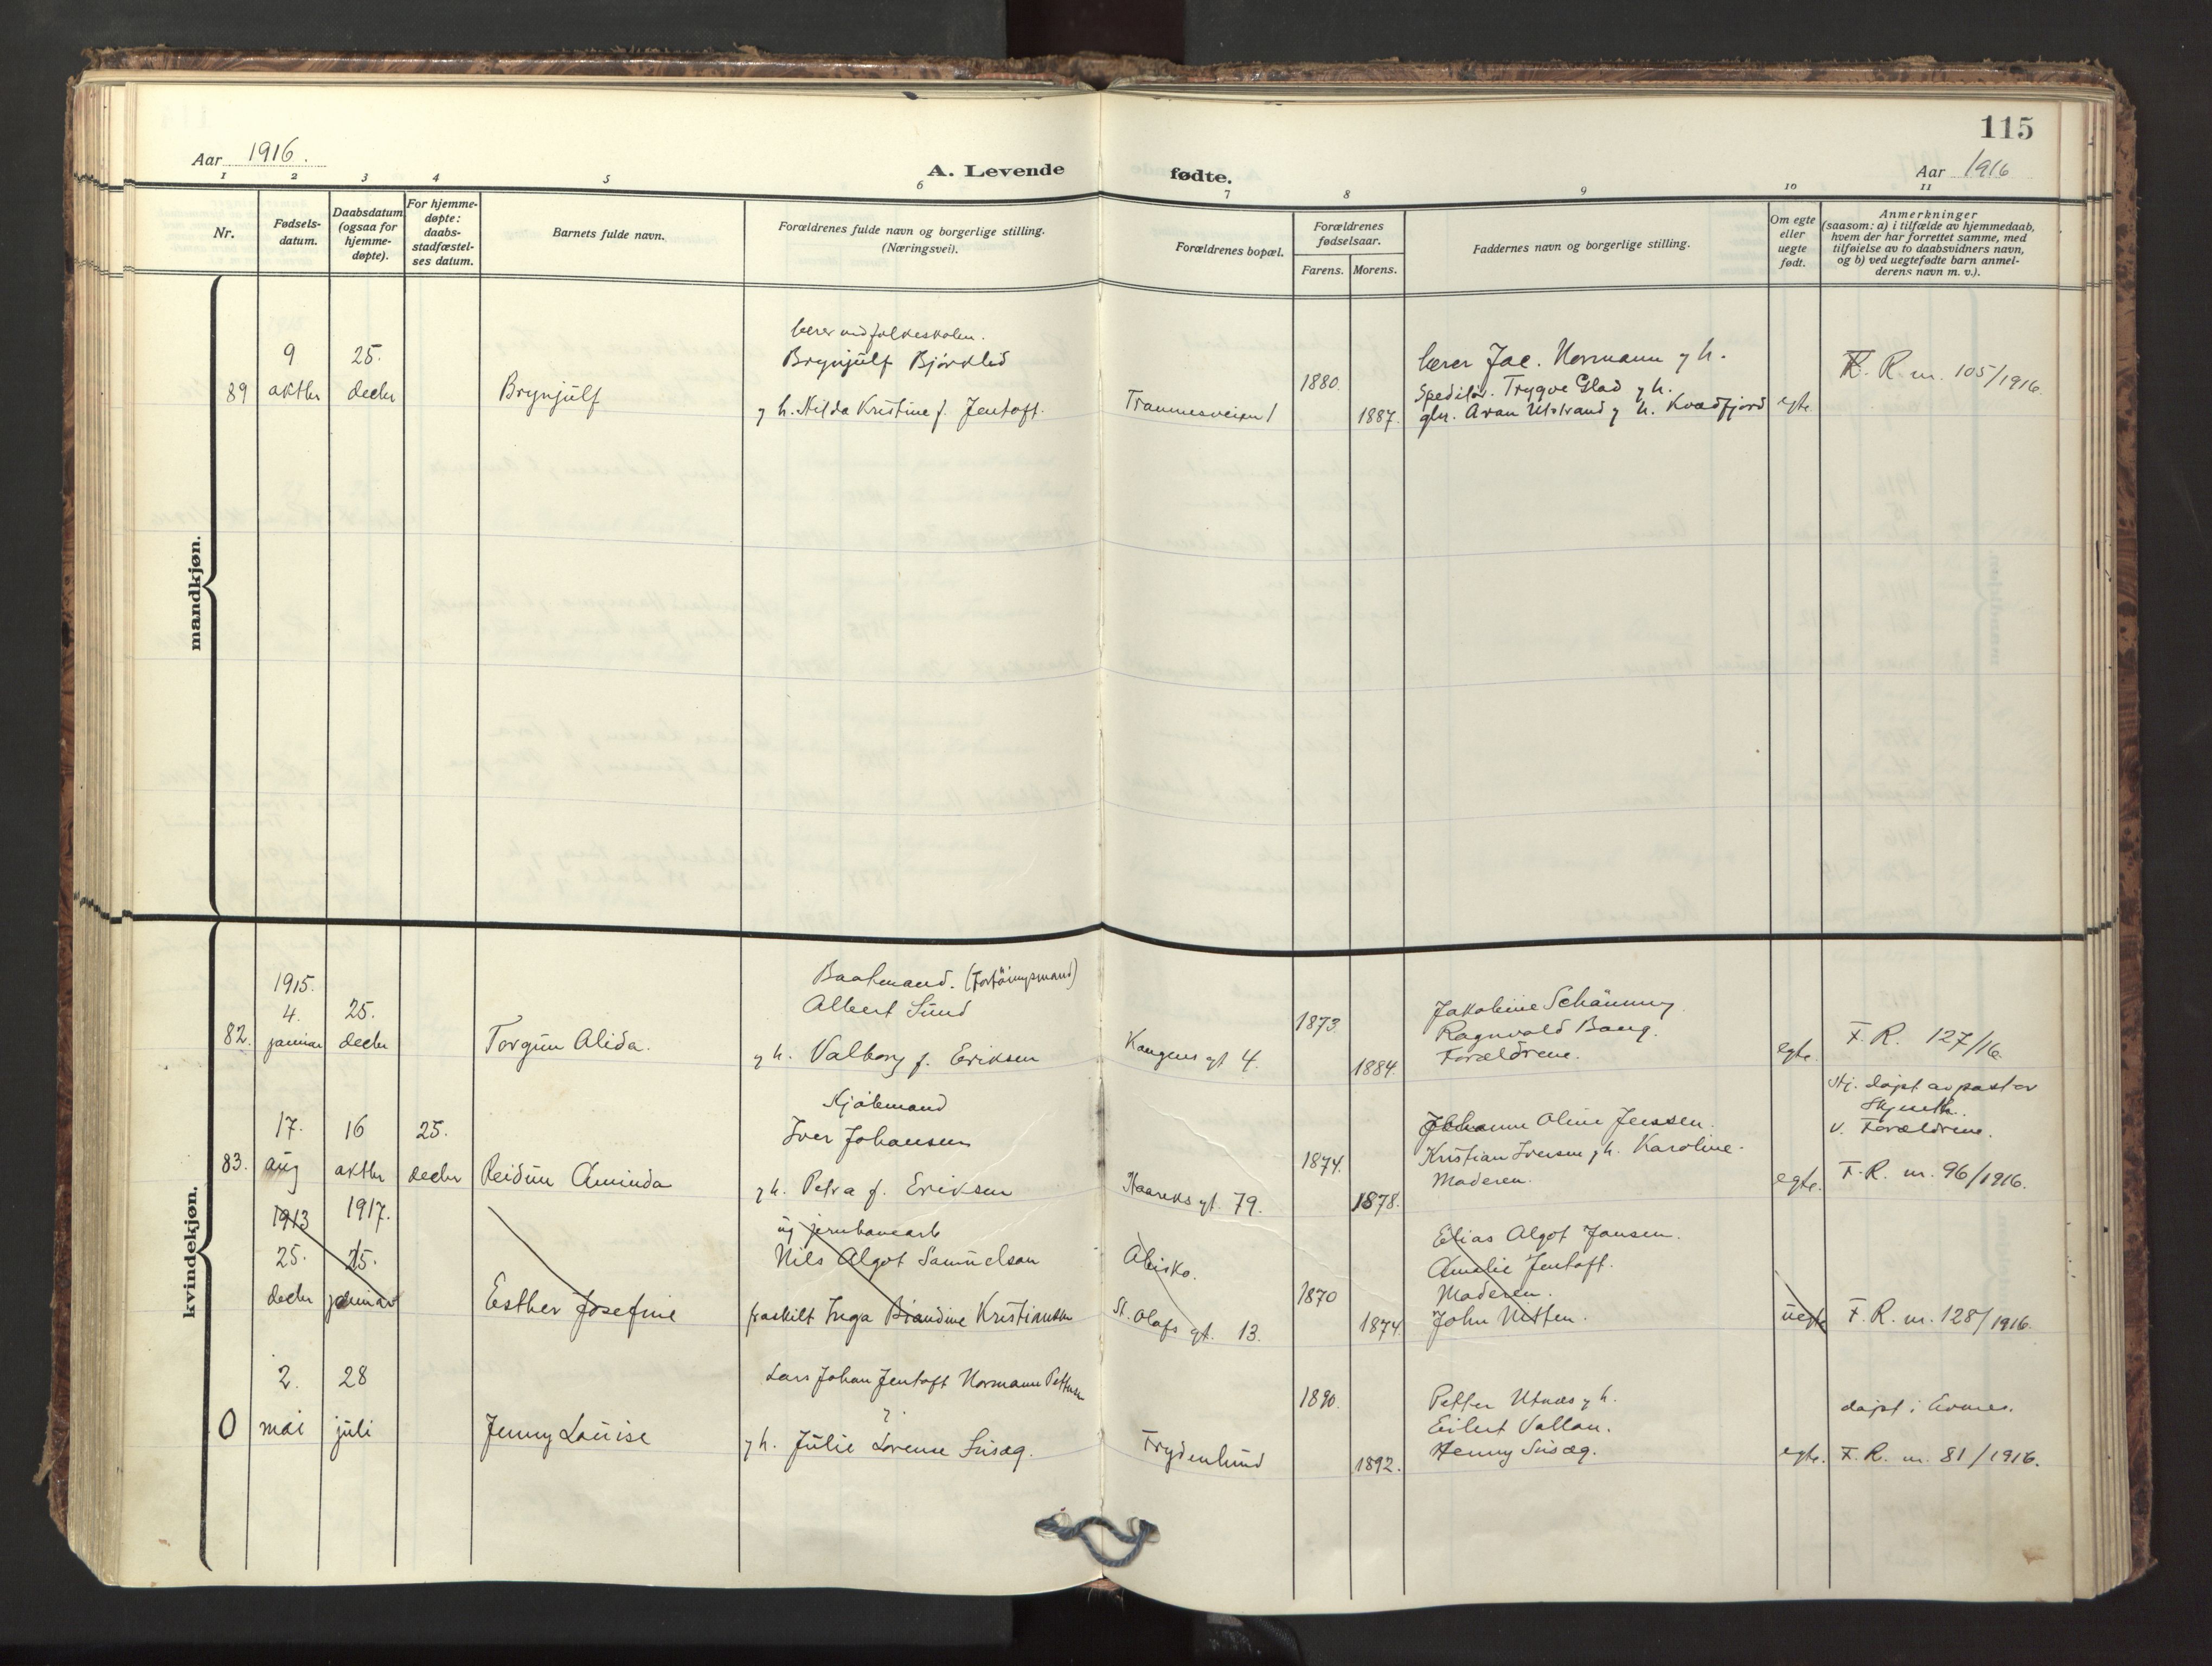 115
Aar 1916.
A. Levende fødte.
Aar 1916
1 2 3 4 5 6 7 8 9 10 11
Nr.
Fødsels-
datum.
Daabsdatum
(ogsaa for
hjemme-
døpte).
For hjemme-
døpte:
daabs-
stadfæstel-
ses datum.
Barnets fulde navn.
Forældrenes fulde navn og borgerlige stilling.
(Næringsvei).
Forældrenes bopæl.
Forældrenes
fødselsaar.
Farens. Morens.
Faddernes navn og borgerlige stilling.
Om egte
eller
uegte
født.
Anmerkninger
(saasom: a) i tilfælde av hjemmedaab,
hvem der har forrettet samme, med
tilføielse av to daabsvidners navn,
og b) ved uegtefødte barn anmel-
derens navn m. v.).
mandkjøn.
89
9
oktbr
25.
decbr
Brynjulf
lærer ved folkeskolen.
Brynjulf Bjørklid
g h. Hilda Kristine f. Jentoft.
1880.
1887.
lærer Jac. Normann g h.
Speditør. Trygve Glad g h.
Utstrand g h. Kvædfjord
egte
F. R. nr. 105/1916.
kvindekjøn.
82.
1915.
4.
januar
25.
decbr
Torgun Alida.
Baatmand.
Albert Sund
g h. Valborg f. Eriksen
Kongens gt 4.
1873.
1884.
Ragnvald Bang.
Forældrene.
egte.
F. R. 127/16.
83.
17.
aug
16
oktbr
25.
decbr
Reidun Aminda
Iver Johansen
g h. Petra f. Eriksen
Haareks gt. 79.
1874.
1878.
Johanne Oline Jenssen.
Kristian Iversen g h. Karoline.
Moderen.
egte.
Hj. døpt av pastor
v. Forældrene.
F. R. nr. 96/1916.
1913
25.
decbr
1917.
25.
januar
Esther Josefine
ug jernbanearb
Nils Algot Samuelson
fraskilt Inga Kristiansen
Abisko.
St. Olafs gt. 13.
1870
1874.
Elias Algot Jansen.
Amalie Jentoft.
Moderen.
John
uegte
F. R. nr. 128/1916.
0
2.
mai
28
juli
Jenny Louise
Lars Johan Jentoft Normann Pettersen
?
g h. Julie Lorense
Frydenlund
1890.
1892.
Petter Utnes g h.
Eilert
Henny
egte.
døpt i
F. R. nr. 81/1916.